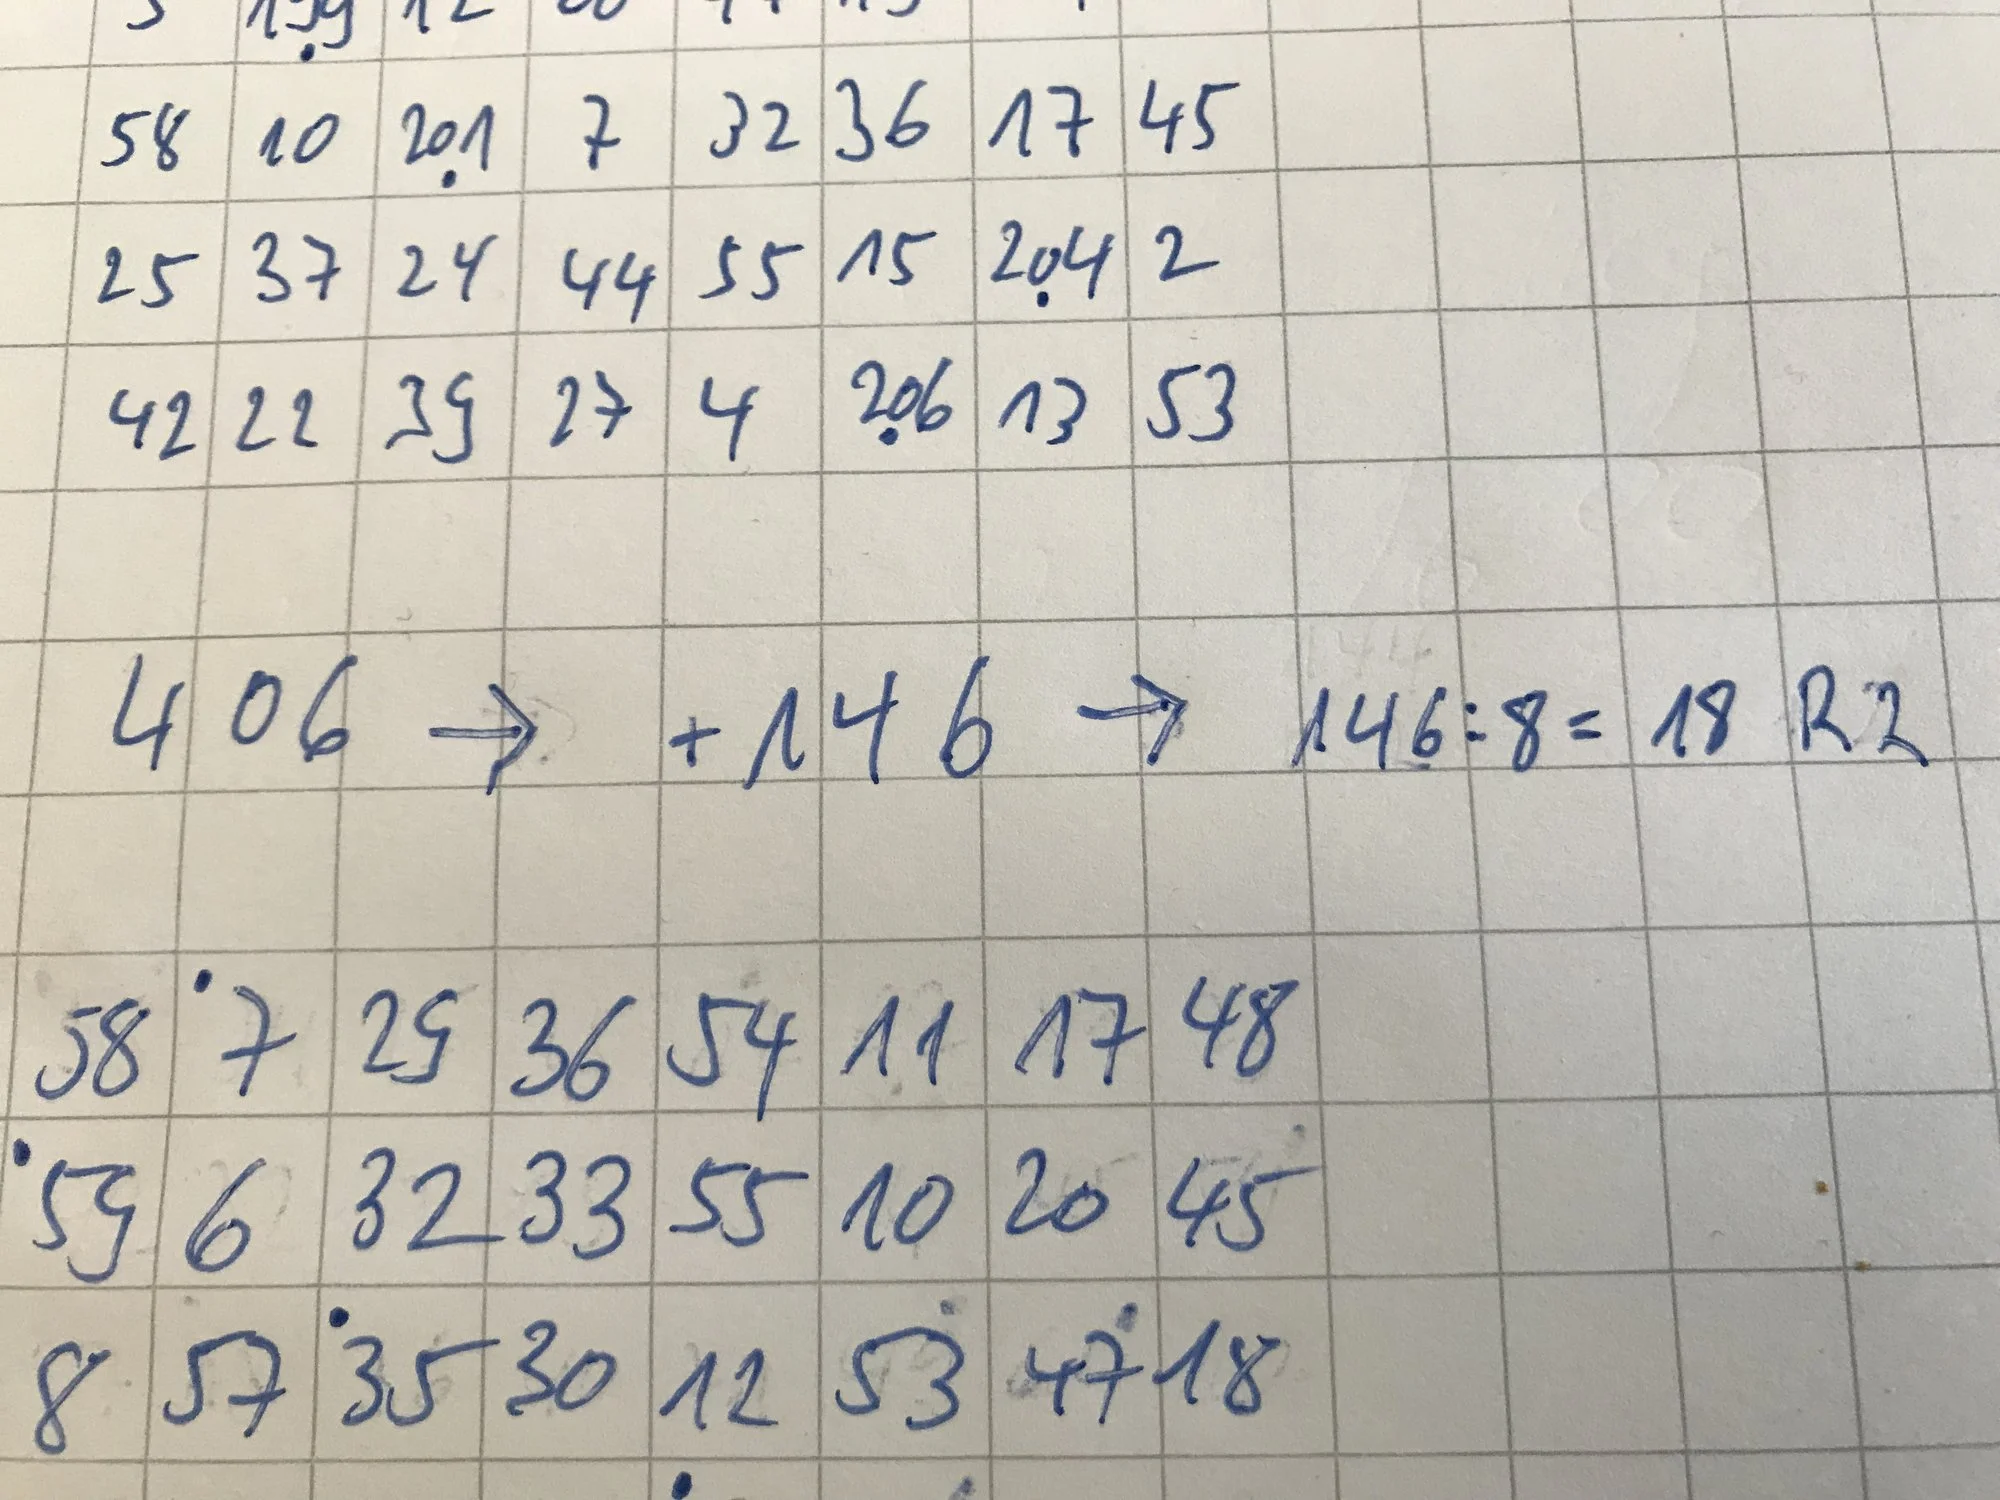 58 10 201 7 32 36 17 45
25 37 24 44 55 15 204 2
42 22 39 27 4 206 13 53
406 → +146 → 146:8= 18 R2
58 7 29 36 54 11 17 48
59 6 32 33 55 10 20 45
8 57 35 30 12 53 47 18